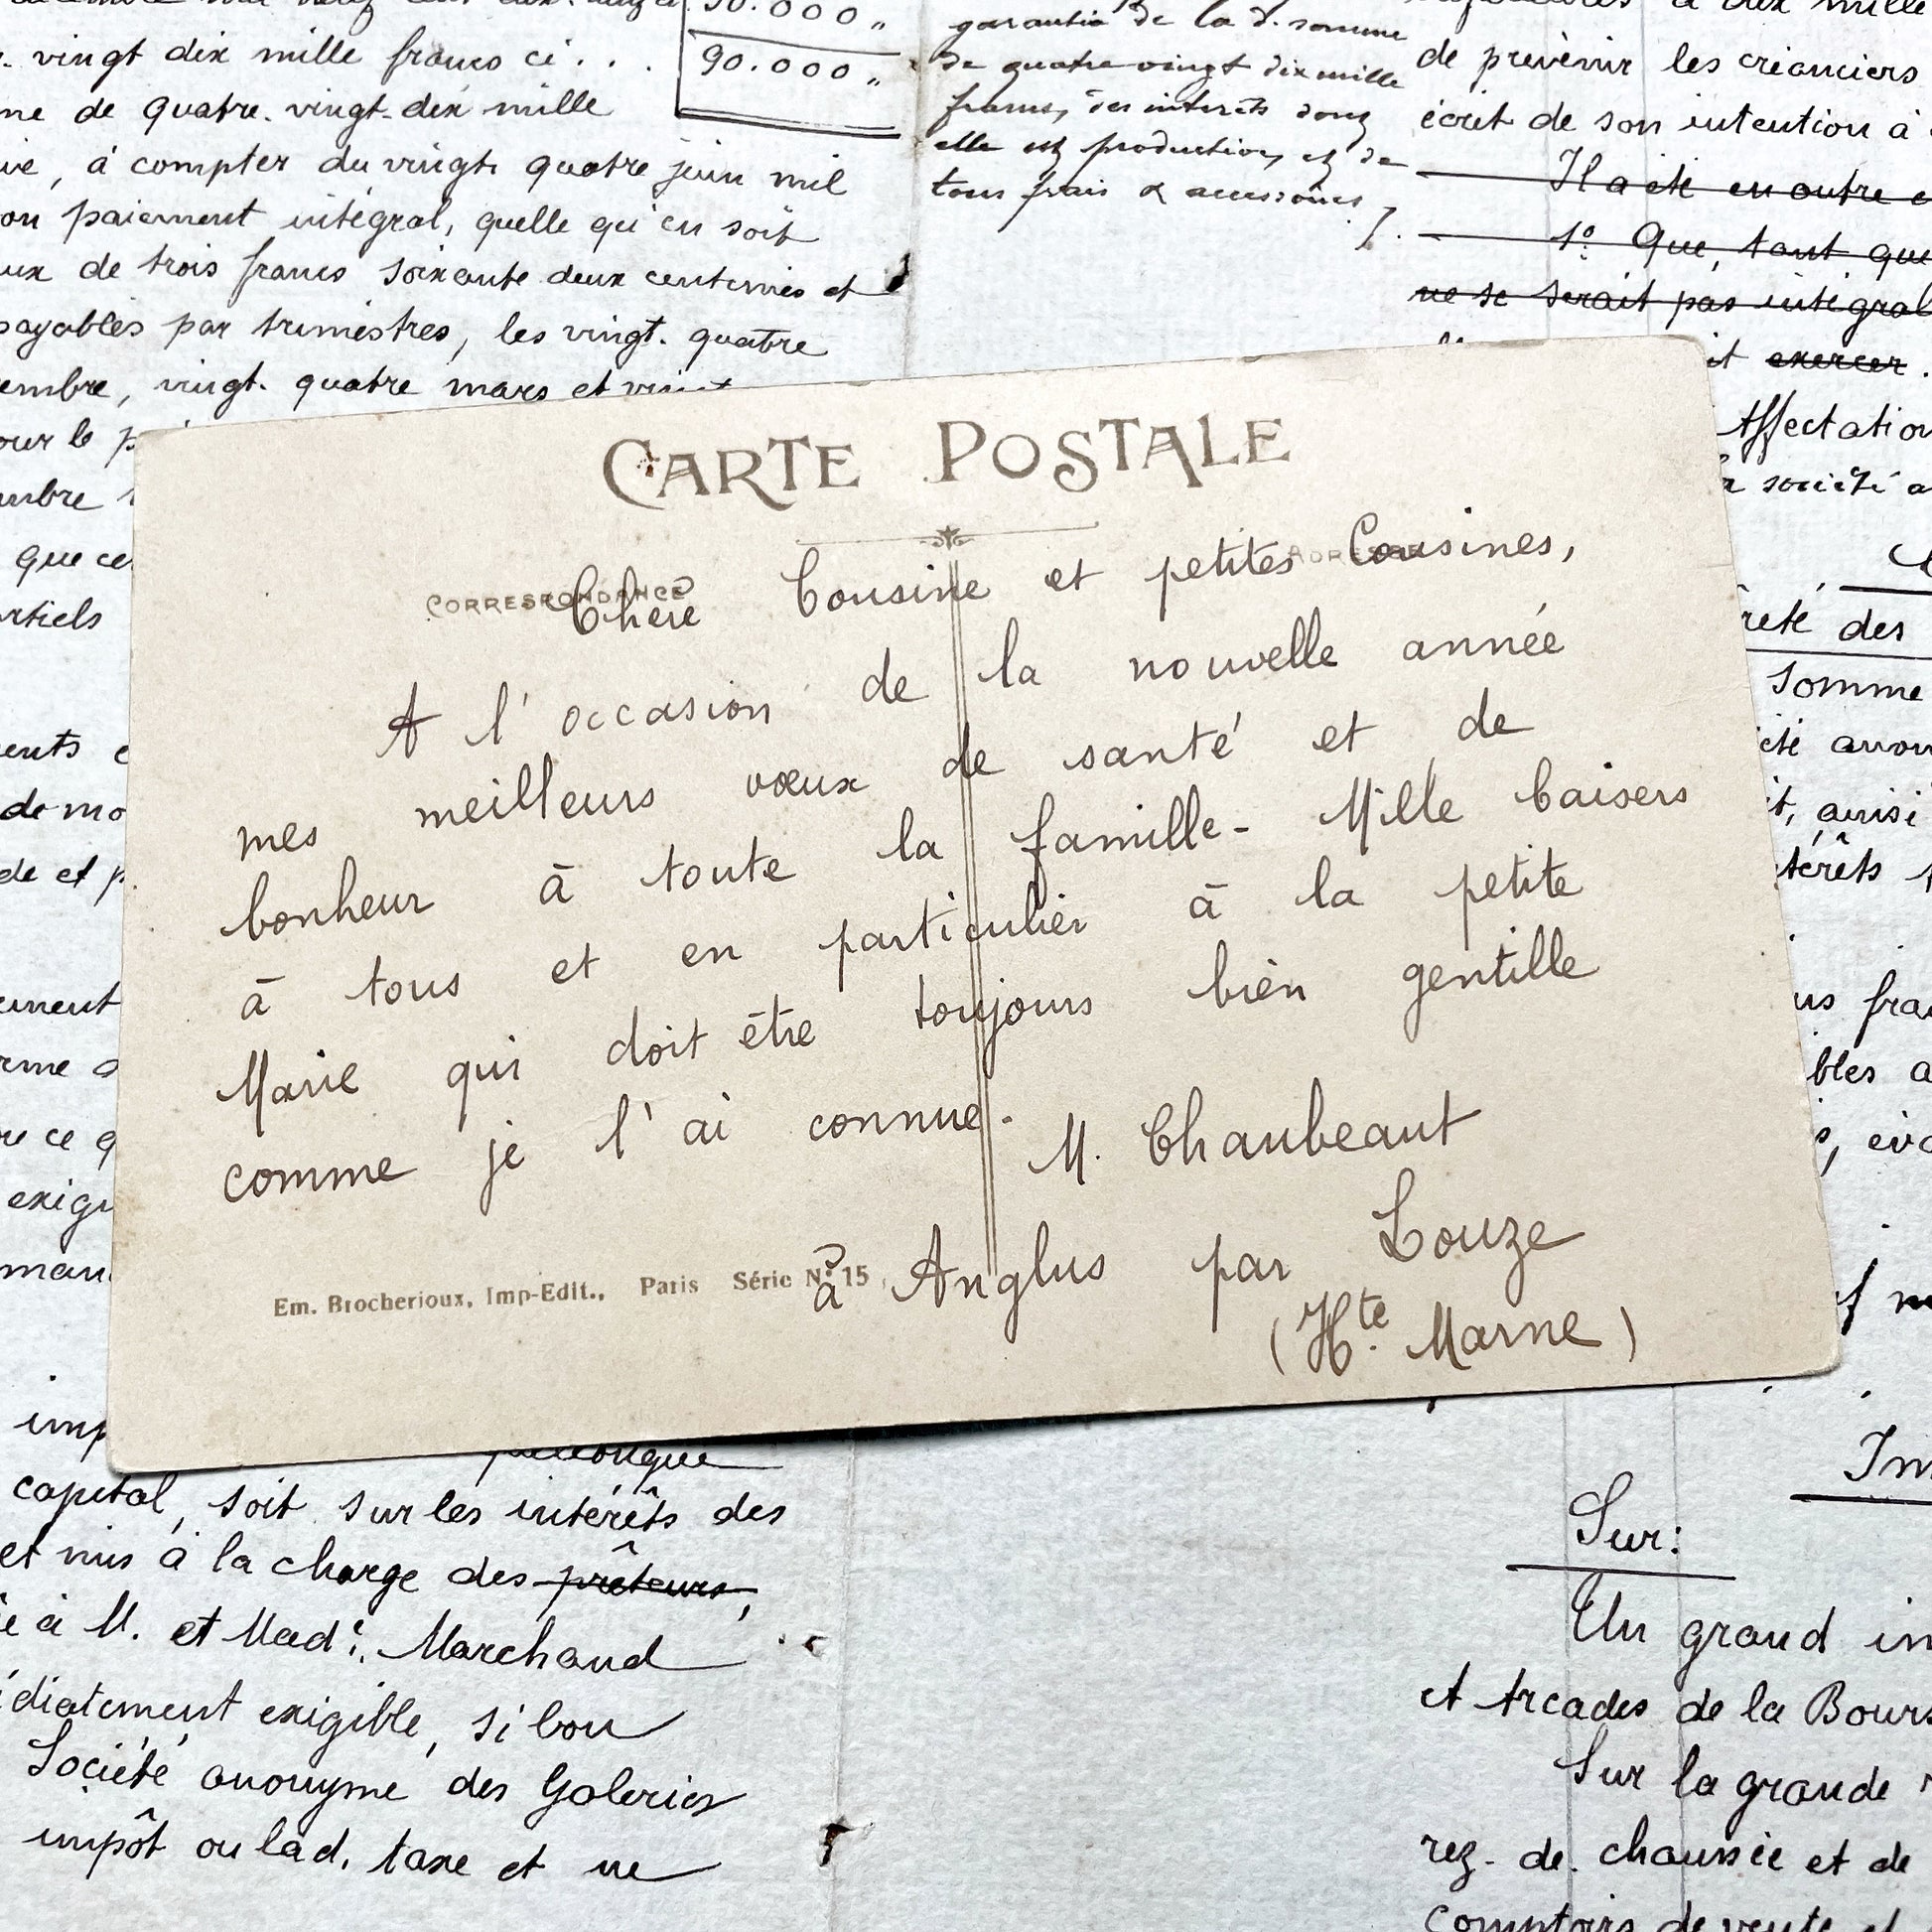 90.000 "
vingt dix mille francs ci . . .
90.000 "
de quatre. vingt-dix mille
à compter du vingt quatre juin mil
paiement intégral, quelle qu'en soit
de trois francs soixante deux centimes et
payables par trimestres, les vingt. quatre
vingt. quatre mars et vingt
garantie de la d. somme
de quatre vingt dix mille
francs, des intérêts dont
elle est productive, et de
tous frais & accessoires /.
de prévenir les créanciers
écrit de son intention à
Il a été en outre
1º. Que, tant que
ne se serait pas intégral
exercer.
Affectation
société
CARTE POSTALE
CORRESPONDANCE
ADRESSE
Chère Cousine et petites Cousines,
A l'occasion de la nouvelle année
mes meilleurs vœux de santé et de
bonheur à toute la famille - Mille baisers
à tous et en particulier à la petite
Marie qui doit être toujours bien gentille
comme je l'ai connue.
M. Chaubeaut
à Anglus par Louze
(Hte. Marne)
Em. Brocherioux, Imp-Edit., Paris Série Nº 15
que ce
des
Somme
ainsi
capital, soit sur les intérêts des
et mis à la charge des prêteurs,
à M. et Made. Marchand
exigible, si bon
Société anonyme des Galeries
impôt ou lad. taxe et ne
Sur:
Un grand
et Arcades de la Bours
Sur la grande
rez-de-chaussée et de
comptoirs de vente et